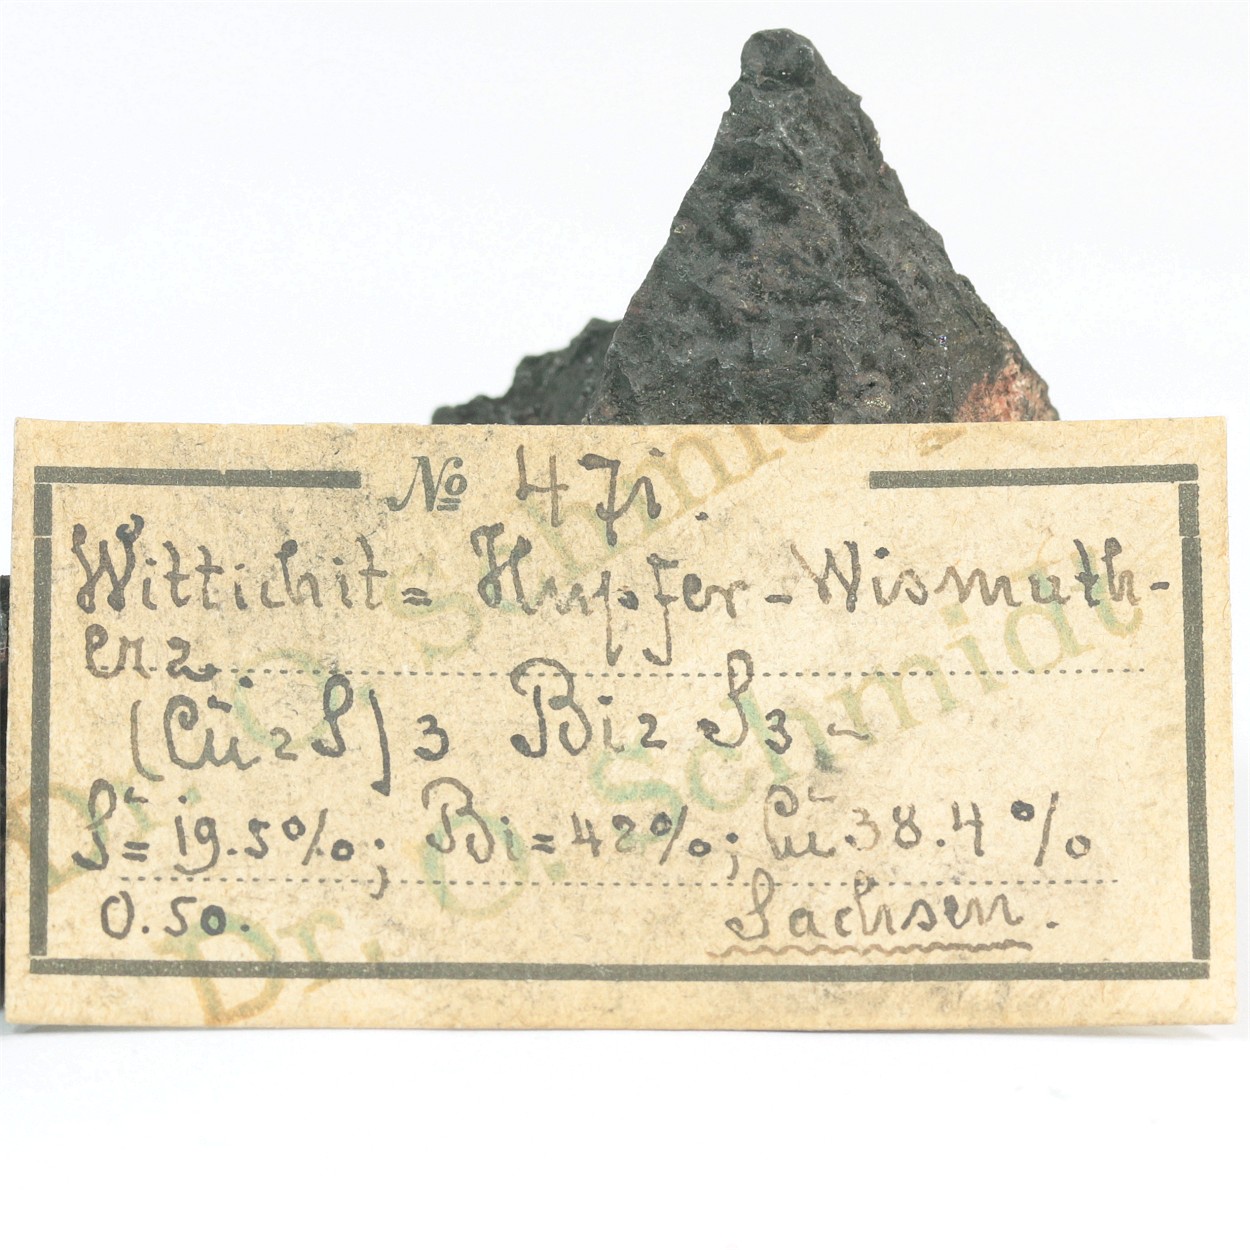 No 471.
Wittichit = Kupfer-Wismuth-
erz
(Cu2S)3 Bi2S3-
S = 19.5%; Bi = 42%; Cu 38.4%
0.50. Sachsen.
Dr. O. Schmidt
Dr. O. Schmidt